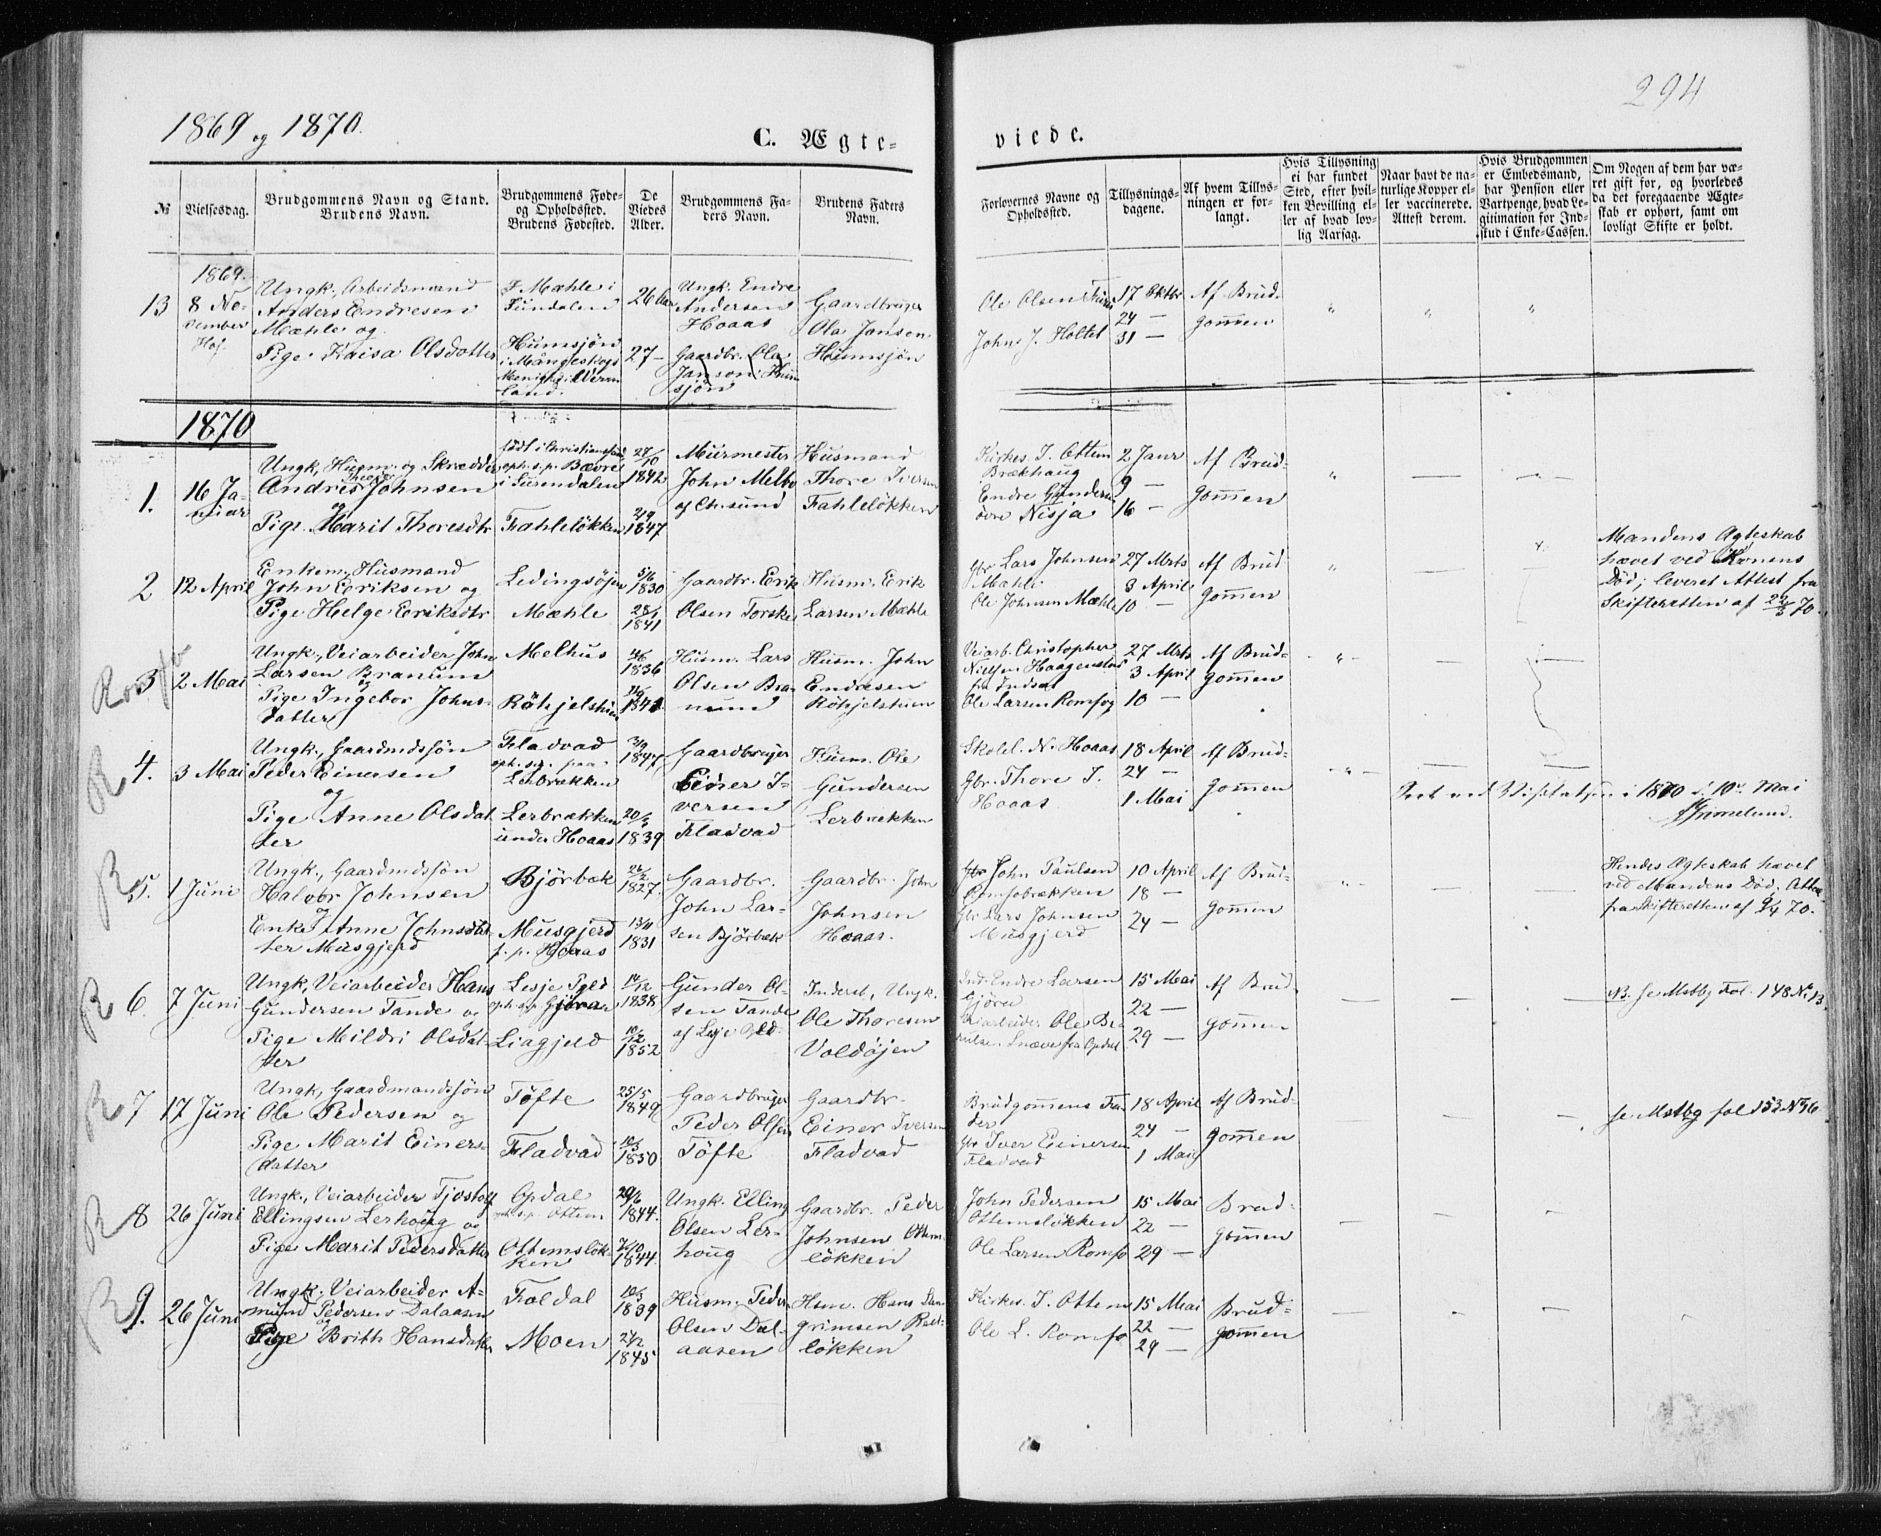 294
1869 og 1870.
C. Ægte-
viede.
№
Vielsesdag.
Brudgommens Navn og Stand.
Brudens Navn.
Brudgommens Føde-
og Opholdssted.
Brudens Fødested.
De
Viedes
Alder.
Brudgommens Fa-
ders Navn.
Brudens Faders
Navn.
Forlovernes Navne og
Opholdssted.
Tillysnings-
dagene.
Af hvem Tillys-
ningen er for-
langt.
Hvis Tillysning
ei har fundet
Sted, efter hvil-
ken Bevilling el-
ler af hvad lov-
lig Aarsag.
Naar havt de na-
turlige Kopper el-
ler vaccinerede.
Attest derom.
Hvis Brudgommen
er Embedsmand,
har Pension eller
Vartpenge, hvad Le-
gitimation for Ind-
skud i Enke-Cassen.
Om Nogen af dem har væ-
ret gift før, og hvorledes
da det foregaaende Ægte-
skab er ophørt, samt om
lovligt Skifte er holdt.
13
1869.
8 No-
vember
Høj.
Ungk., Arbeidsmand
Anders Endresen
Mæhle og
Pige Kaisa Olsdotter
Mæhle i
Sundalen
Humsjön
i Mangskogs
Menighed i Verm
land.
26 Aar
27 -
Ungk. Endre
Andersen
Hoaas
Gaardbr. Ola
Janson Hum
sjön
Gaardbruger
Ola Janson
Humsjön
Ole Olsen
John J. Holtet
17 Oktbr
24 —
31 —
Af Brud-
gommen
1870
1.
16 Ja-
nuar
Ungk., Husm. og Skrædder
Andreas Johnsen
og
Pige Marit Thoresdtr
født i Christianssund
oph. s. p. Bævre
i Surendalen
Fahleløkken
1842
1847
Murmester
John Melbo
af Chsund
Husmand
Thore Iversen
Fahleløkken
Kirkes. I. Ottem
Brækhaug
Endre Gundersen
øvre Nisja
2 Janr
9 —
16 —
Af Brud-
gommen
2
12 April
Enkem., Husmand
John Eriksen og
Pige Helge Eriksdtr
Ledingsøjen
Mæhle
5/6
1830
28/1
1841
Gaardbr. Erik
Olsen Torske
Husm. Erik
Larsen Mæhle
Gbr Lars Johnsen
Mæhle
Ole Johnsen Mæhle
27 Mrts
3 April
10 —
Af Brud
gommen
Mandens Ægteskab
hævet ved Konens
Død; leveret Attest fra
Skifteretten af 22/3 70.
Romfo
3
2 Mai
Ungk., Veiarbeider John
Larsen Branum
og
Pige Ingebor Johns-
datter
Melhus
Röhjelstuen
1836
Husm. Lars
Olsen Bra-
num
Husm. John
Endresen
Röhjelstuen
Veiarb. Christopher
Nielsen Haagenstad
fra Indset
Ole Larsen Romfog
27 Mrts
3 April
10 —
Af Brud-
gommen
R
4.
3 Mai
Ungk., Gaardmdssøn
Peder Einersen
og
Pige Anne Olsdat
ter
Fladvad
oph. sig paa
Lerbrækken
Lerbrækken
under Hoaas
1847
20/5
1839
Gaardbruger
Einer I-
versen
Fladvad
Husm. Ole
Gundersen
Lerbrækken
Skolel. N. Hoaas
Gbr. Thore I.
Hoaas
18 April
24 —
1 Mai
Af Brud-
gommen
ved Visitatsen i 1870 i 10. Mai
R
5.
1 Juni
Ungk., Gaardmdssøn
Halvor Johnsen
Enke Anne Johnsdat
ter Musgjerd
Björbæk
Musgjerd
f. p. Hoaas
1827.
13/11
1831
Gaardbr.
John Lar-
sen Björbæk
Gaardbr. John
Johnsen
Hoaas.
Gbr John Paulsen
Romfobrækken
Gbr Lars Johnsen
Musgjerd
10 April
18 —
24 —
Af Brud-
gommen
Hendes Ægteskab hævet
ved Mandens Død; Attest
fra Skifteretten af 9/4 70.
R
6.
7 Juni
Ungk., Veiarbeider Hans
Gundersen Tande og
Pige Mildri Olsdat-
ter
Lesje Pgld
oph. s. p. Gjøra
Liagjeld
14/12
1838
10/2
1852
Gunder Ol-
sen Tande
af Lesje Pgld
Inderst, Ungk.
Ole Thoresen
Voldöjen
Ind. Endre Larsen
Gjøra
Veiarbeider Ole
Snæve fra Opdal
15 Mai
22 —
29 —
Af Brud
gommen
NB. se Mstbg Fol. 148 No 13.
R
7
17 Juni
Ungk., Gaardmandssøn
Ole Pedersen og
Pige Marit Einers-
datter
Töfte
Fladvad
25/5
1849
10/3
1850
Gaardbruger
Peder Olsen
Töfte
Gaardbr.
Einer Iversen
Fladvad
Brudgommens Fa-
der
Gbr Iver Einersen
Fladvad
18 April
24 —
1 Mai
Af Brud-
gommen
se Mstbg fol 153 No 36
R
8
26 Juni
Ungk., Veiarbeider Tjostolf
Ellingsen Lerhoug og
Pige Marit Pedersdatter
Opdal
oph. s. p. Ottem
Ottemsløk-
ken
20/6
1844.
7/10
1844.
Ungk. Elling
Olsen Ler-
houg
Gaardbr. Peder
Johnsen Ottem-
løkken
John Pedersen
Ottemsløkken
Ole Larsen Romfo
15 Mai
22 —
29 —
Brud-
gommen
R
9.
26 Juni
Ungk. Veiarbeider A-
mund Pedersen Dalaasen
og
Pige Brith Hansdatter
Foldal
Moen
10/3
1839
1845
Husm. Peder
Olsen Dal-
aasen
Husm. Hans Lan-
grimsen
løkken
Kirkes. I. Ottem
Ole L. Romfo
15 Mai
22 —
29 —
Brud-
gommen